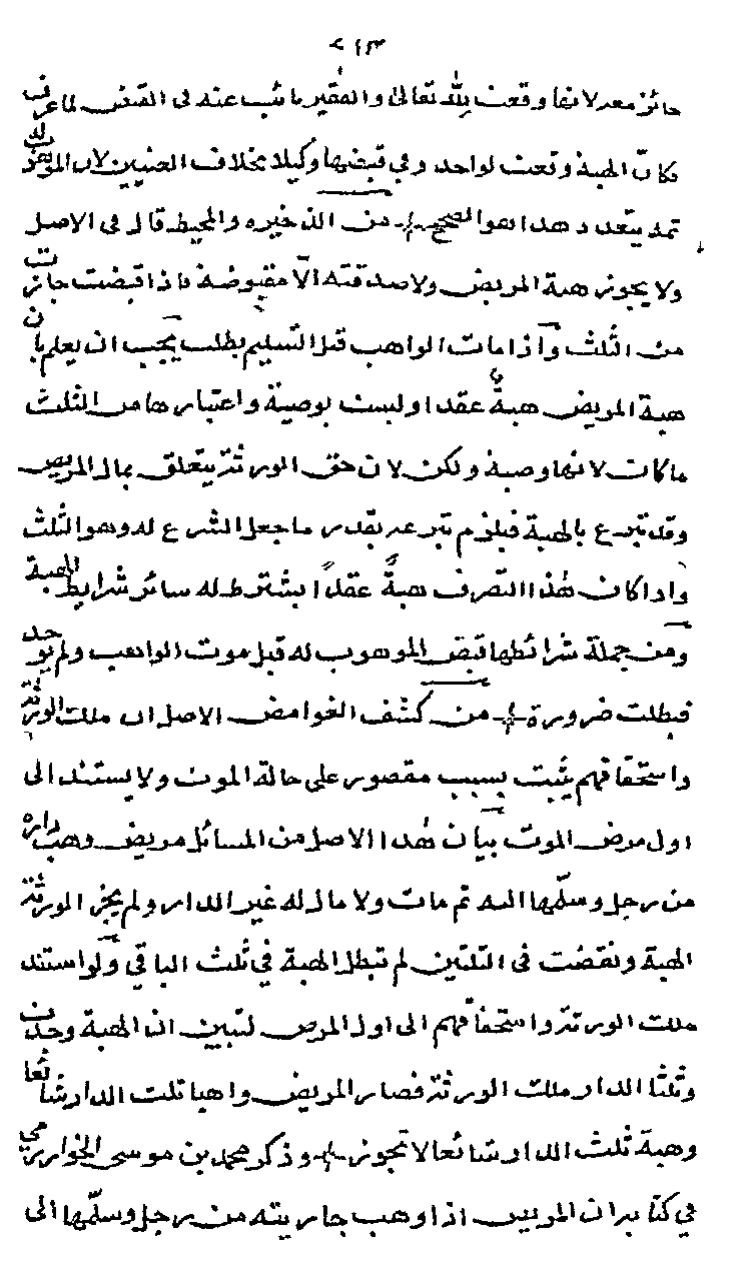 ٢٤٣
جائز معه لانها وقعت لله تعالى والفقير نائب عنه في القبض لما عرف
فكان الهبة وقعت لواحد وفي قبضها وكيلا بخلاف الغنيين لان الموهوب له
تمه يتعدد هذا هو الصحيح من الذخيره والمحيط قال في الاصل
ولا يجوز هبة المريض ولا صدقته الا مقبوضة فاذا قبضت جازت
من الثلث واذا مات الواهب قبل التسليم بطلت يجب ان يعلم بان
هبة المريض هبة عقدا وليست بوصية واعتبارها من الثلث
ما كانت لانها وصية ولكن لان حق الورثة يتعلق بمال المريض
وقد تبرع بالهبة فيلزم تبرعه بقدر ما جعل الشرع له وهو الثلث
واذا كان هذا التصرف هبة عقدا يشترط له سائر شرايط الهبة
ومن جملة شرائطها قبض الموهوب له قبل موت الواهب ولم يوجد
فبطلت ضرورة من كشف الغوامض الاصل ان ملك الورثة
واستحقاقهم يثبت بسبب مقصور على حالة الموت ولا يستند الى
اول مرض الموت بيان هذا الاصل من المسائل مريض وهب داره
من رجل وسلمها اليه ثم مات ولا مال له غير الدار ولم يجز الورثة
الهبة ونقضت في الثلثين لم تبطل الهبة في ثلث الباقي ولو استند
ملك الورثة واستحقاقهم الى اول المرض لتبين ان الهبة وجدت
وثلثا الدار ملك الورثة فصار المريض واهبا ثلث الدار شائعا
وهبة ثلث الدار شائعا لا تجوز وذكر محمد بن موسى الخوارزمي
في كتابه ان المريض اذا وهب جاريته من رجل وسلمها الى